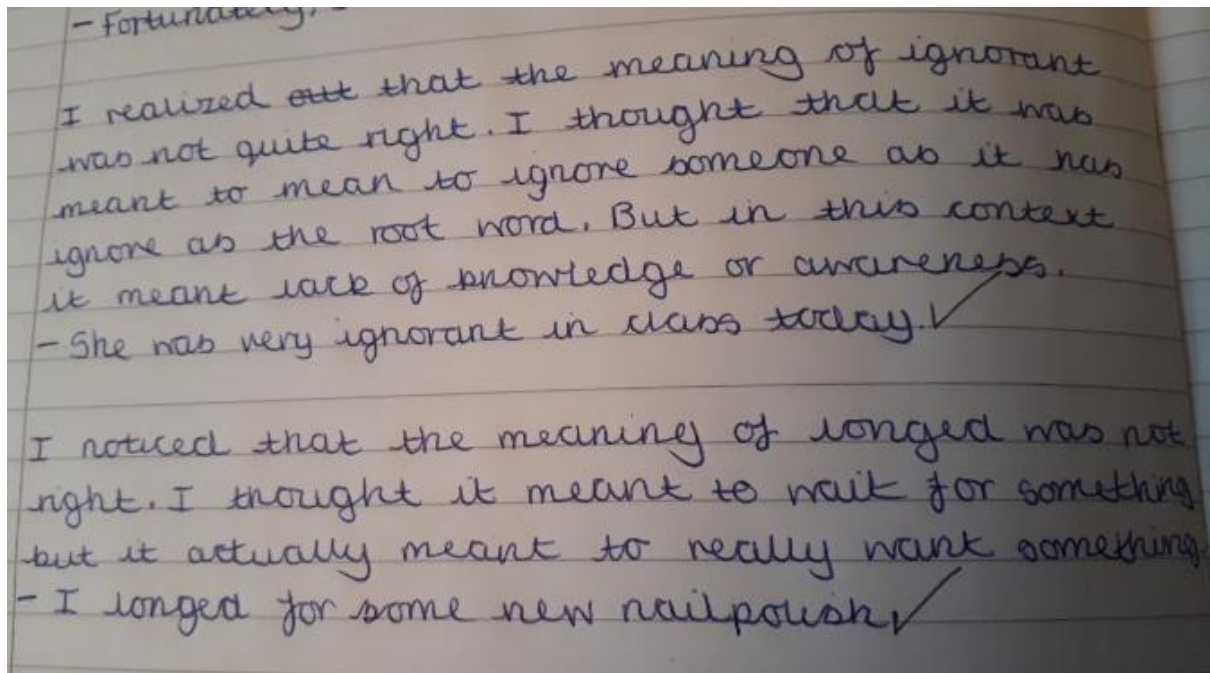 - Fortunately,
I realized out that the meaning of ignorant
was not quite right. I thought that it was
meant to mean to ignore someone as it has
ignore as the root word. But in this context
it meant lack of knowledge or awareness.
- She was very ignorant in class today. ✓
I noticed that the meaning of longed was not
right. I thought it meant to wait for something
but it actually meant to really want something
- I longed for some new nailpolish ✓